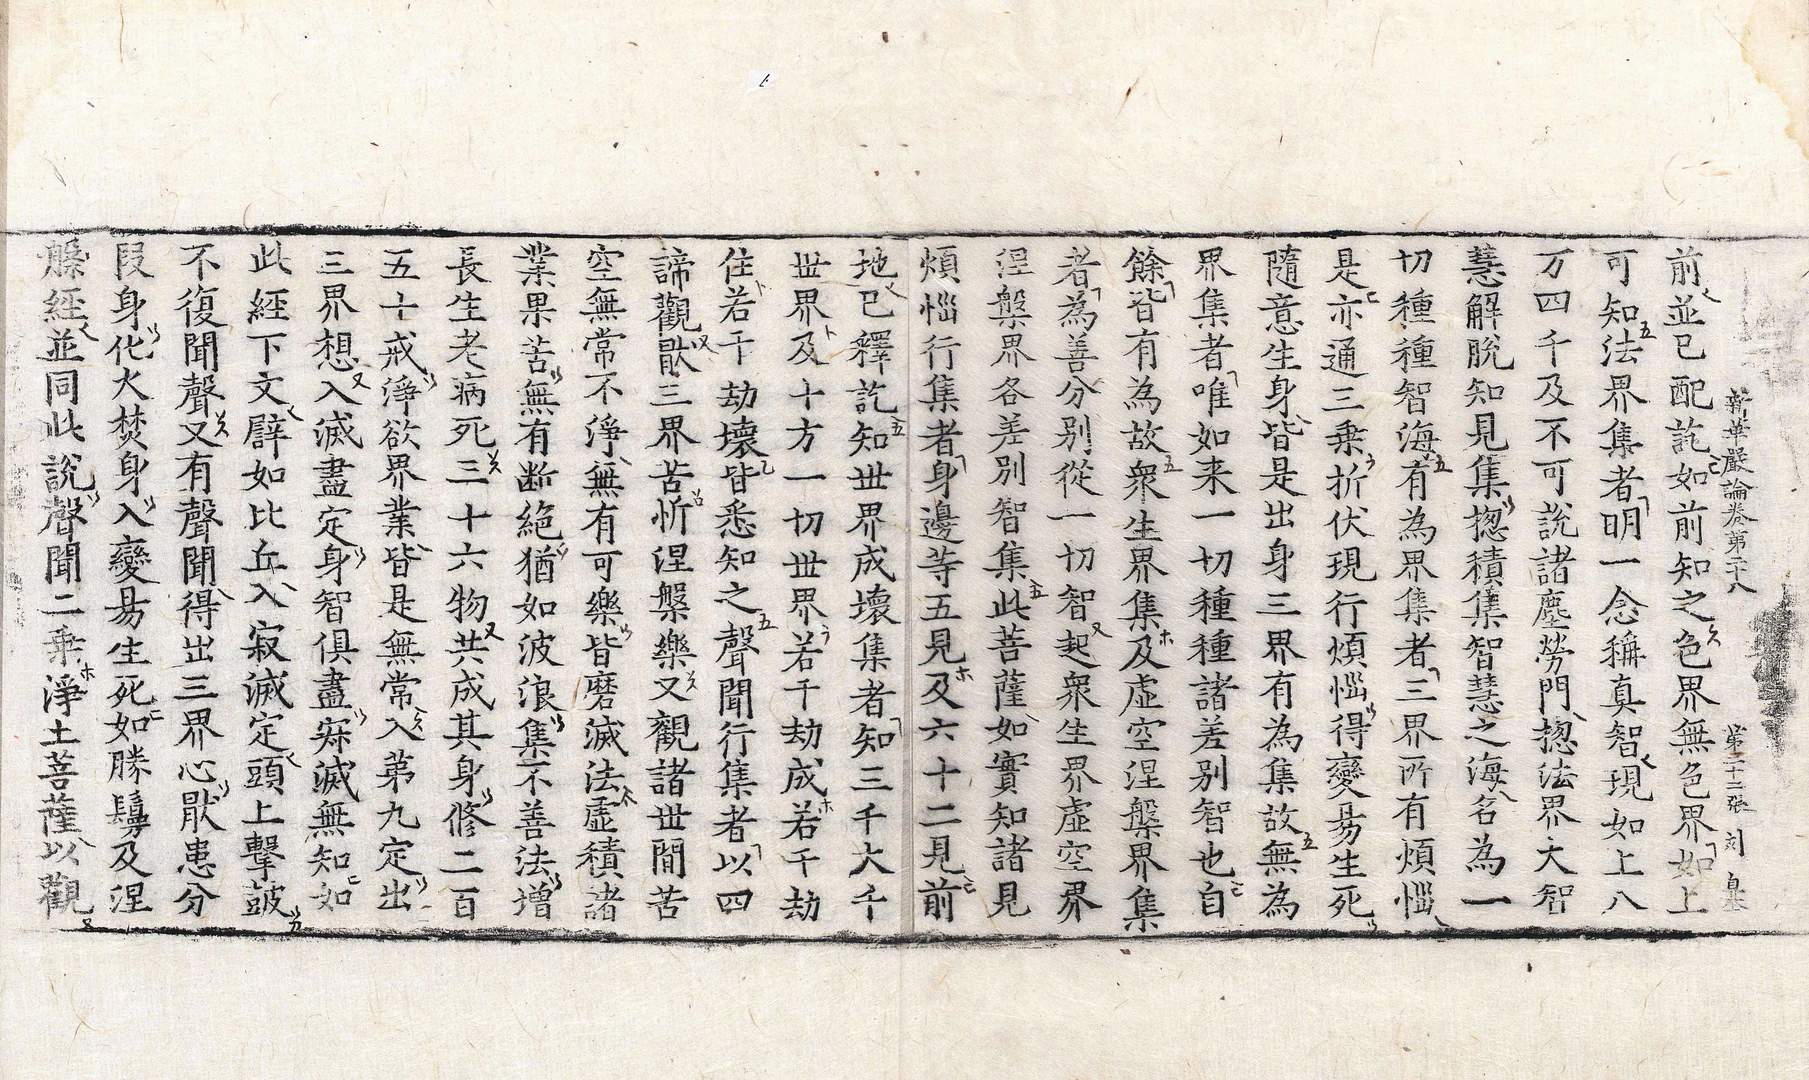 新華嚴論卷第二十八　第二十二張　刻
前並已配訖如前知之色界無色界如上
可知法界集者明一念稱真智現如上八
万四千及不可說諸塵勞門揔法界大智
慧解脫知見集揔積集智慧之海名為一
切種種智海有為界集者三界所有煩惱
是亦通三乘折伏現行煩惱得變易生死
隨意生身皆是出身三界有為集故無為
界集者唯如来一切種種諸差別智也自
餘皆有為故衆生界集及虛空涅槃界集
者為善分別從一切智起衆生界虛空界
涅槃界各差別智集此菩薩如實知諸見
煩惱行集者身邊等五見及六十二見前
地已釋訖知世界成壞集者知三千大千
世界及十方一切世界若干劫成若干劫
住若干劫壞皆悉知之聲聞行集者以四
諦觀猒三界苦忻涅槃樂又觀諸世間苦
空無常不淨無有可樂皆磨滅法虛積諸
業果苦無有断絕猶如波浪集不善法增
長生老病死三十六物共成其身修二百
五十戒淨欲界業皆是無常入第九定出
三界想入滅盡定身智俱盡寂滅無知如
此經下文譬如比丘入寂滅定頭上擊皷
不復聞聲又有聲聞得出三界心猒患分
段身化火焚身入變易生死如勝鬘及涅
槃經並同此說聲聞二乘淨土菩薩以觀